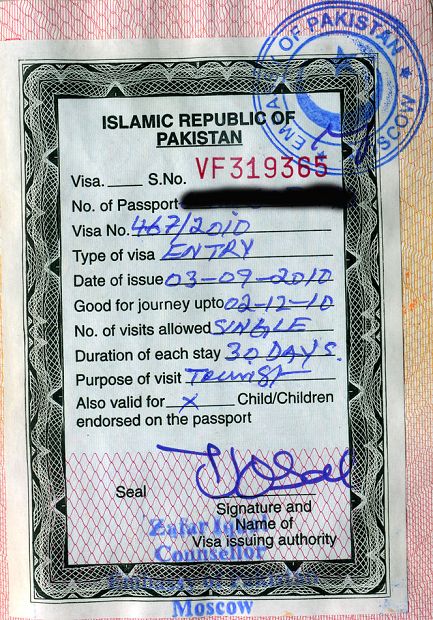 EMBASSY OF PAKISTAN
★ MOSCOW ★
ISLAMIC REPUBLIC OF
PAKISTAN
Visa. ___ S.No. VF319365
No. of Passport
Visa No. 467/2010
Type of visa ENTRY
Date of issue 03-09-2010
Good for journey upto 02-12-10
No. of visits allowed SINGLE
Duration of each stay 30 DAYS.
Purpose of visit Tourist
Also valid for x Child/Children
endorsed on the passport
Seal
Signature and
Name of
Visa issuing authority
Zafar Iqbal
Counsellor
Embassy of Pakistan
Moscow